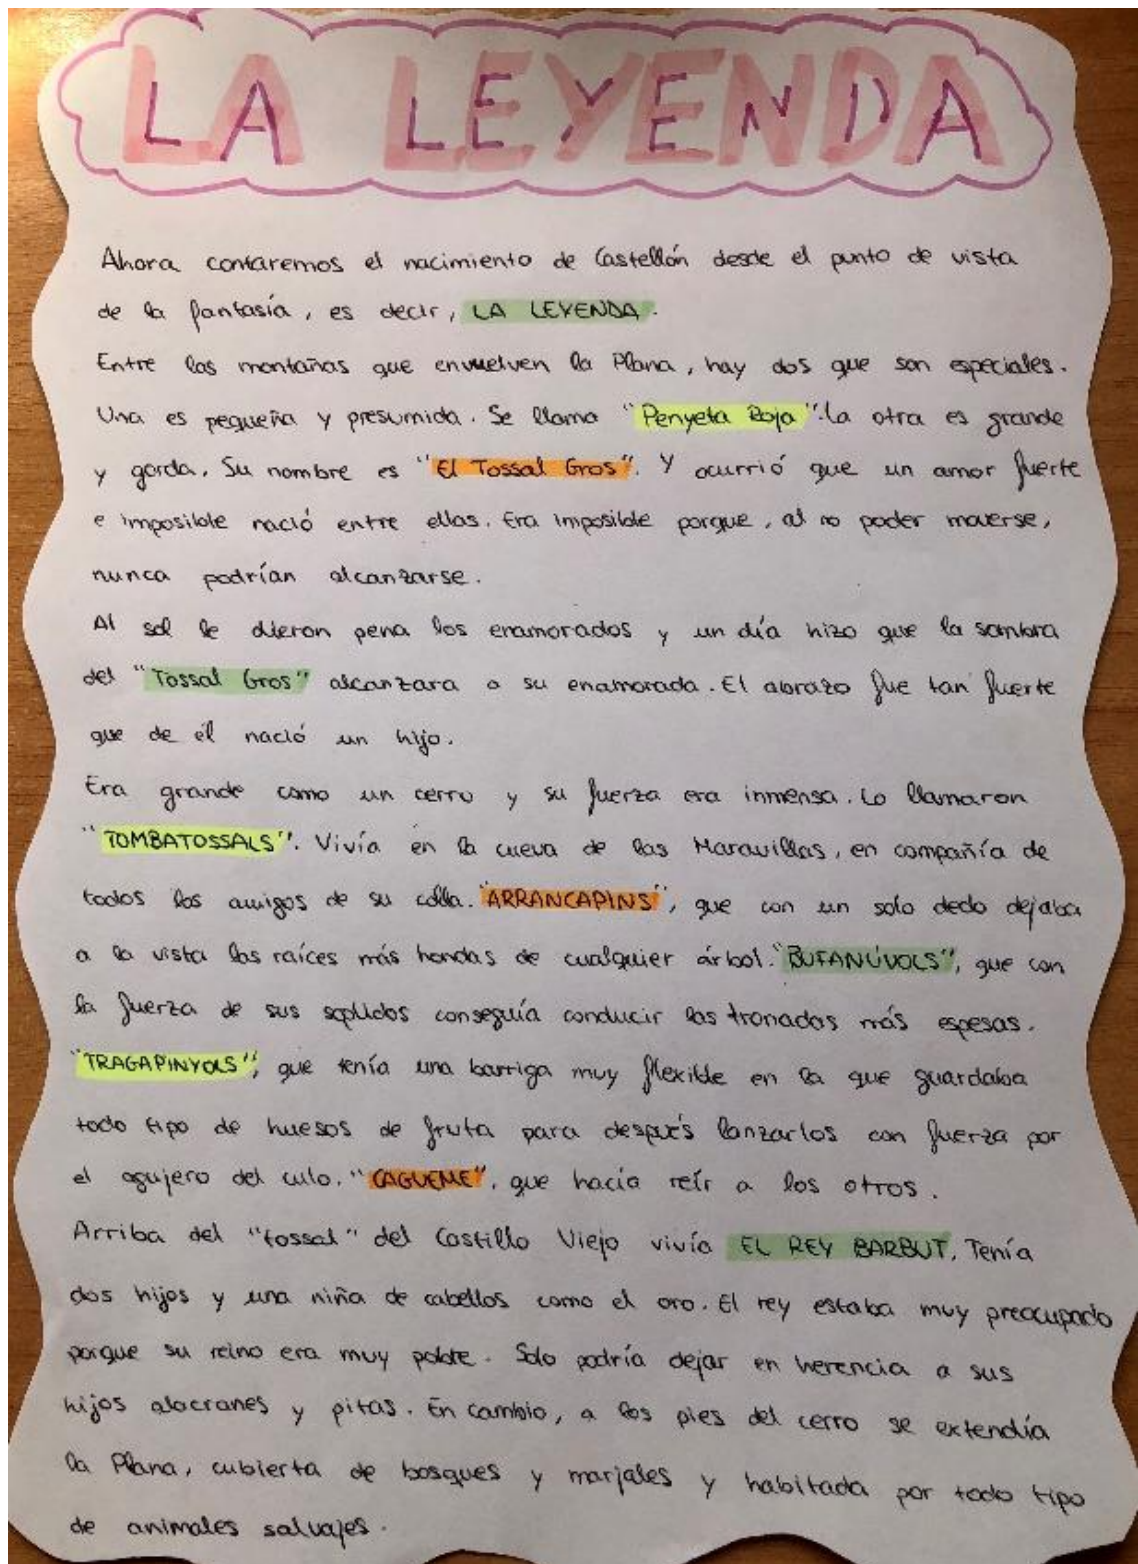 LA LEYENDA
Ahora contaremos el nacimiento de Castellón desde el punto de vista
de la fantasía, es decir, LA LEYENDA.
Entre las montañas que envuelven la Plana, hay dos que son especiales.
Una es pequeña y presumida. Se llama "Penyeta Roja". La otra es grande
y gorda. Su nombre es "El Tossal Gros". Y ocurrió que un amor fuerte
e imposible nació entre ellas. Era imposible porque, al no poder moverse,
nunca podrían alcanzarse.
Al sol le dieron pena los enamorados y un día hizo que la sombra
del "Tossal Gros" alcanzara a su enamorada. El abrazo fue tan fuerte
que de él nació un hijo.
Era grande como un cerro y su fuerza era inmensa. Lo llamaron
"TOMBATOSSALS". Vivía en la cueva de las Maravillas, en compañía de
todos los amigos de su colla. "ARRANCAPINS", que con un solo dedo dejaba
a la vista las raíces más hondas de cualquier árbol. "BUFANÚVOLS", que con
la fuerza de sus soplidos conseguía conducir las tronadas más espesas.
"TRAGAPINYOLS", que tenía una barriga muy flexible en la que guardaba
todo tipo de huesos de fruta para después lanzarlos con fuerza por
el agujero del culo. "CAGUEME", que hacía reír a los otros.
Arriba del "tossal" del Castillo Viejo vivía EL REY BARBUT. Tenía
dos hijos y una niña de cabellos como el oro. El rey estaba muy preocupado
porque su reino era muy pobre. Solo podría dejar en herencia a sus
hijos alacranes y pitas. En cambio, a los pies del cerro se extendía
la Plana, cubierta de bosques y marjales y habitada por todo tipo
de animales salvajes.